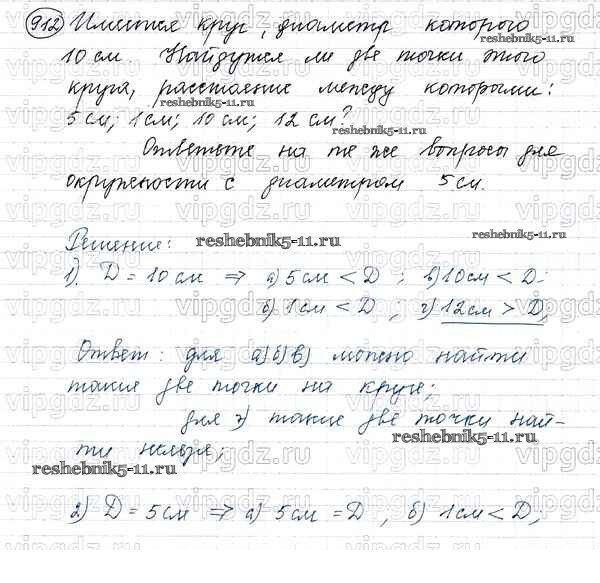 912 Имеется круг, диаметр которого
10 см. Найдутся ли две точки этого
круга, расстояние между которыми:
reshebnik5-11.ru
5 см; 1 см; 10 см; 12 см?
Ответьте на те же вопросы для
окружности с диаметром 5 см.
vipgdz.ru
Решение:
reshebnik5-11.ru
1). D = 10 см ⇒ а) 5 см < D ; в) 10 см < D;
б) 1 см < D ; г) 12 см > D;
Ответ: для а) б) в) можно найти
такие две точки на круге;
для г) такие две точки най-
ти нельзя;
reshebnik5-11.ru
reshebnik5-11.ru
2) D = 5 см ⇒ а) 5 см = D ; б) 1 см < D;